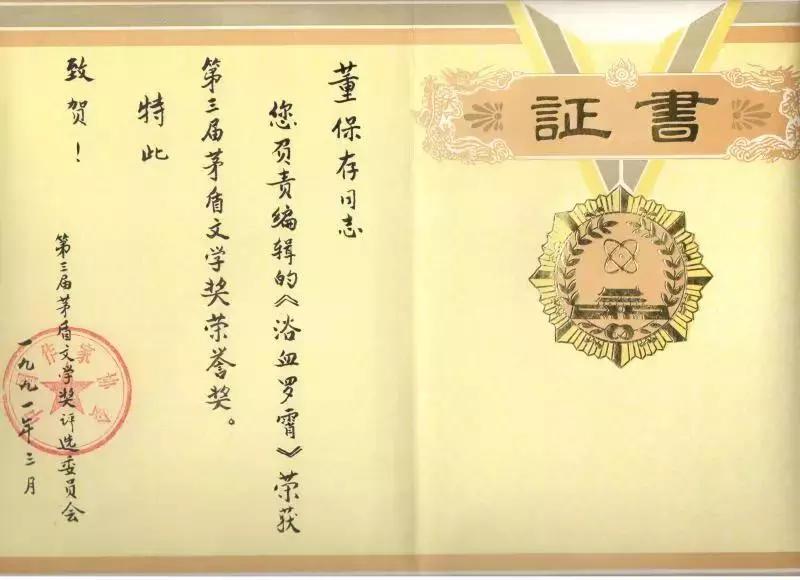 證書
董保存同志
您负责编辑的《浴血罗霄》荣获
第三届茅盾文学奖荣誉奖。
特此
致贺！
第三届茅盾文学奖评选委员会
一九九一年三月
中国作家协会